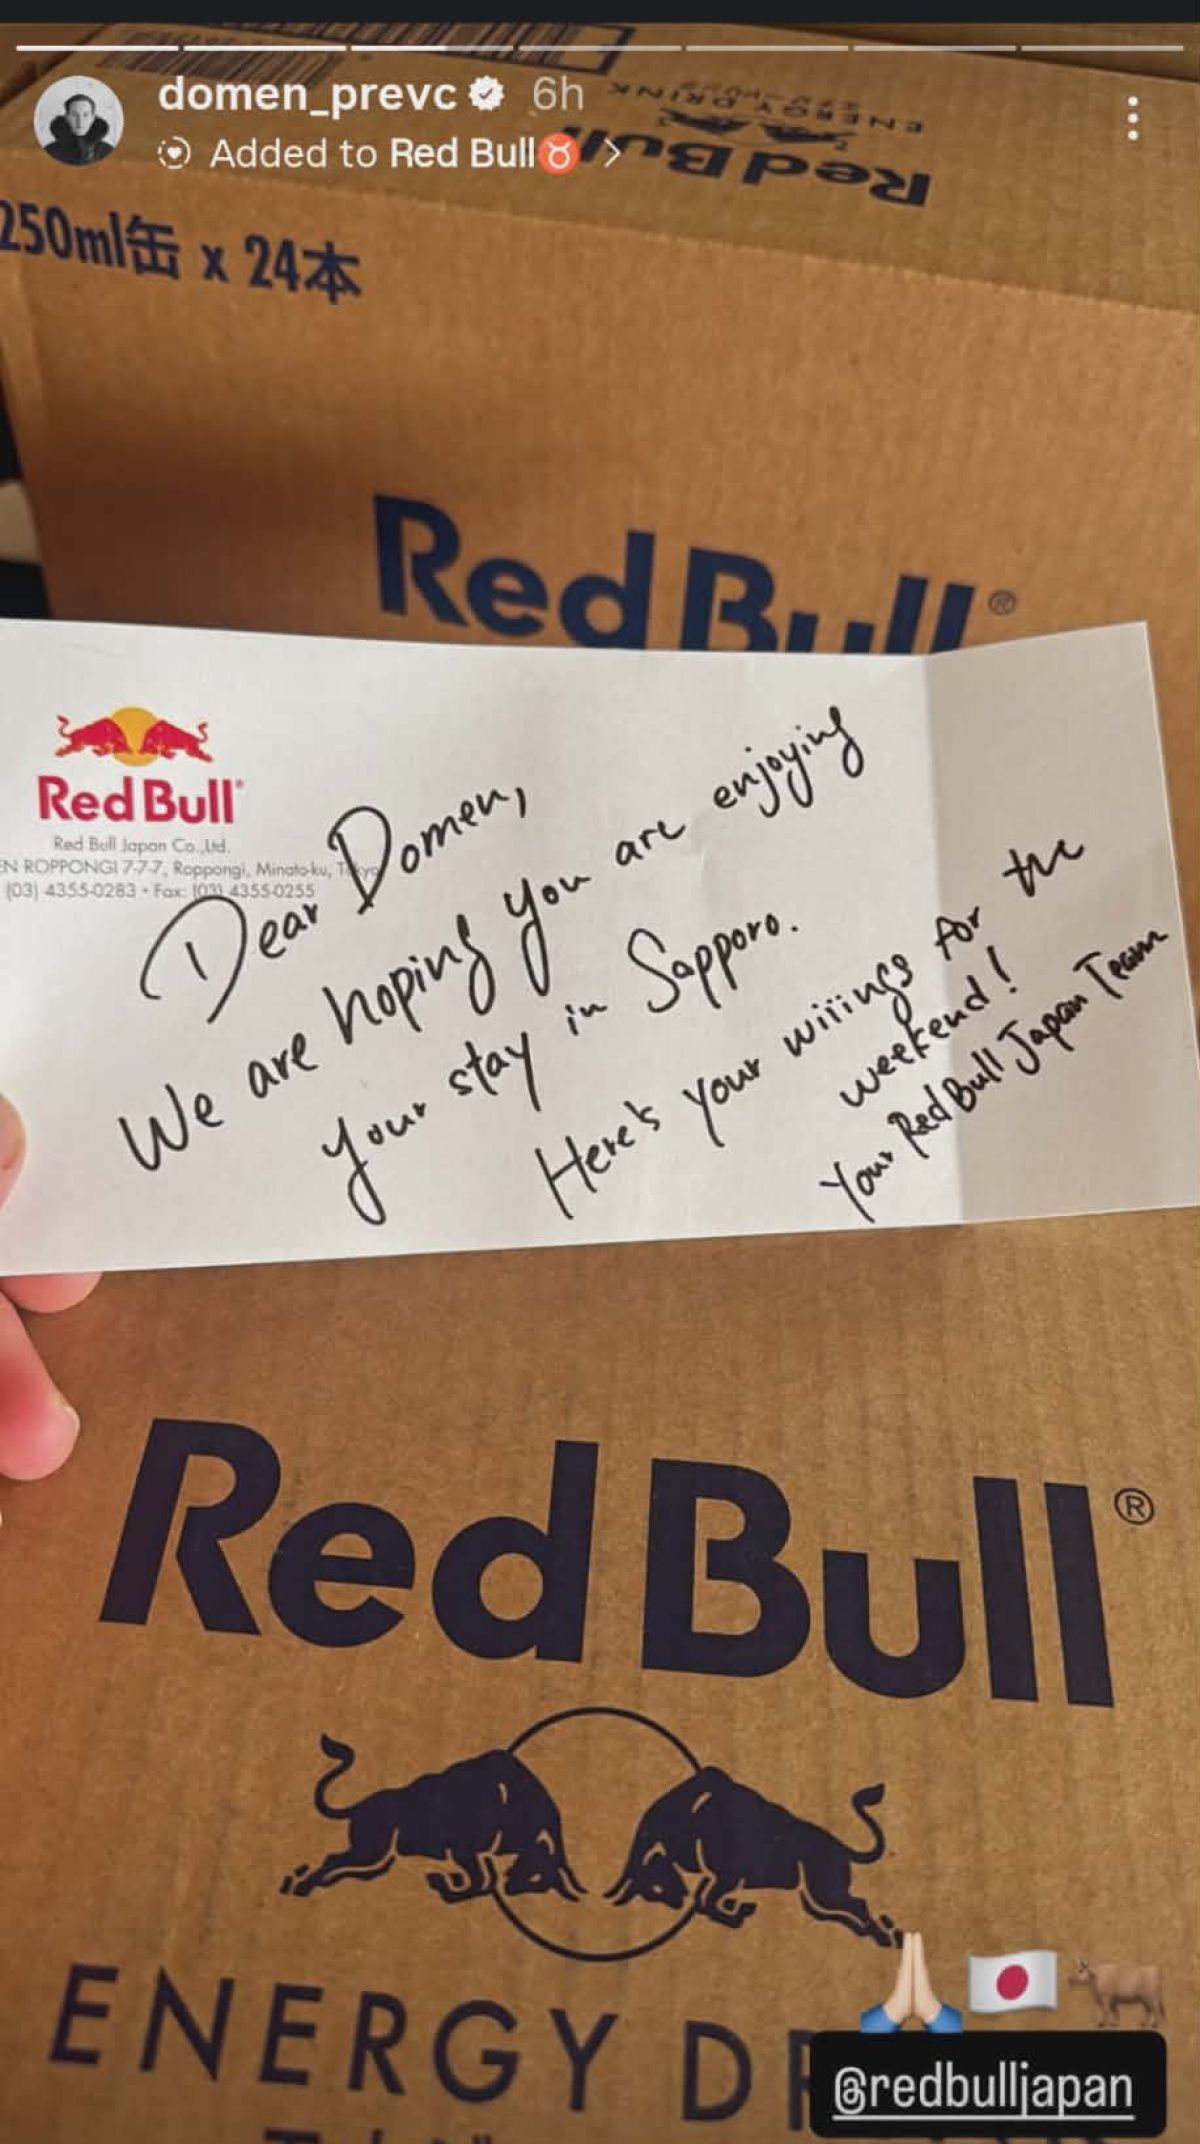 domen_prevc 6h
Added to Red Bull♉ >
ENERGY DRINK
Red Bull
250ml缶 x 24本
Red Bull®
Red Bull®
Red Bull Japan Co.,Ltd.
ROPPONGI 7-7-7, Roppongi, Minato-ku, Tokyo
(03) 4355-0283 • Fax: (03) 4355-0255
Dear Domen,
We are hoping you are enjoying
your stay in Sapporo.
Here's your wiiings for the
weekend!
Your Red Bull Japan Team
Red Bull®
ENERGY DR
@redbulljapan